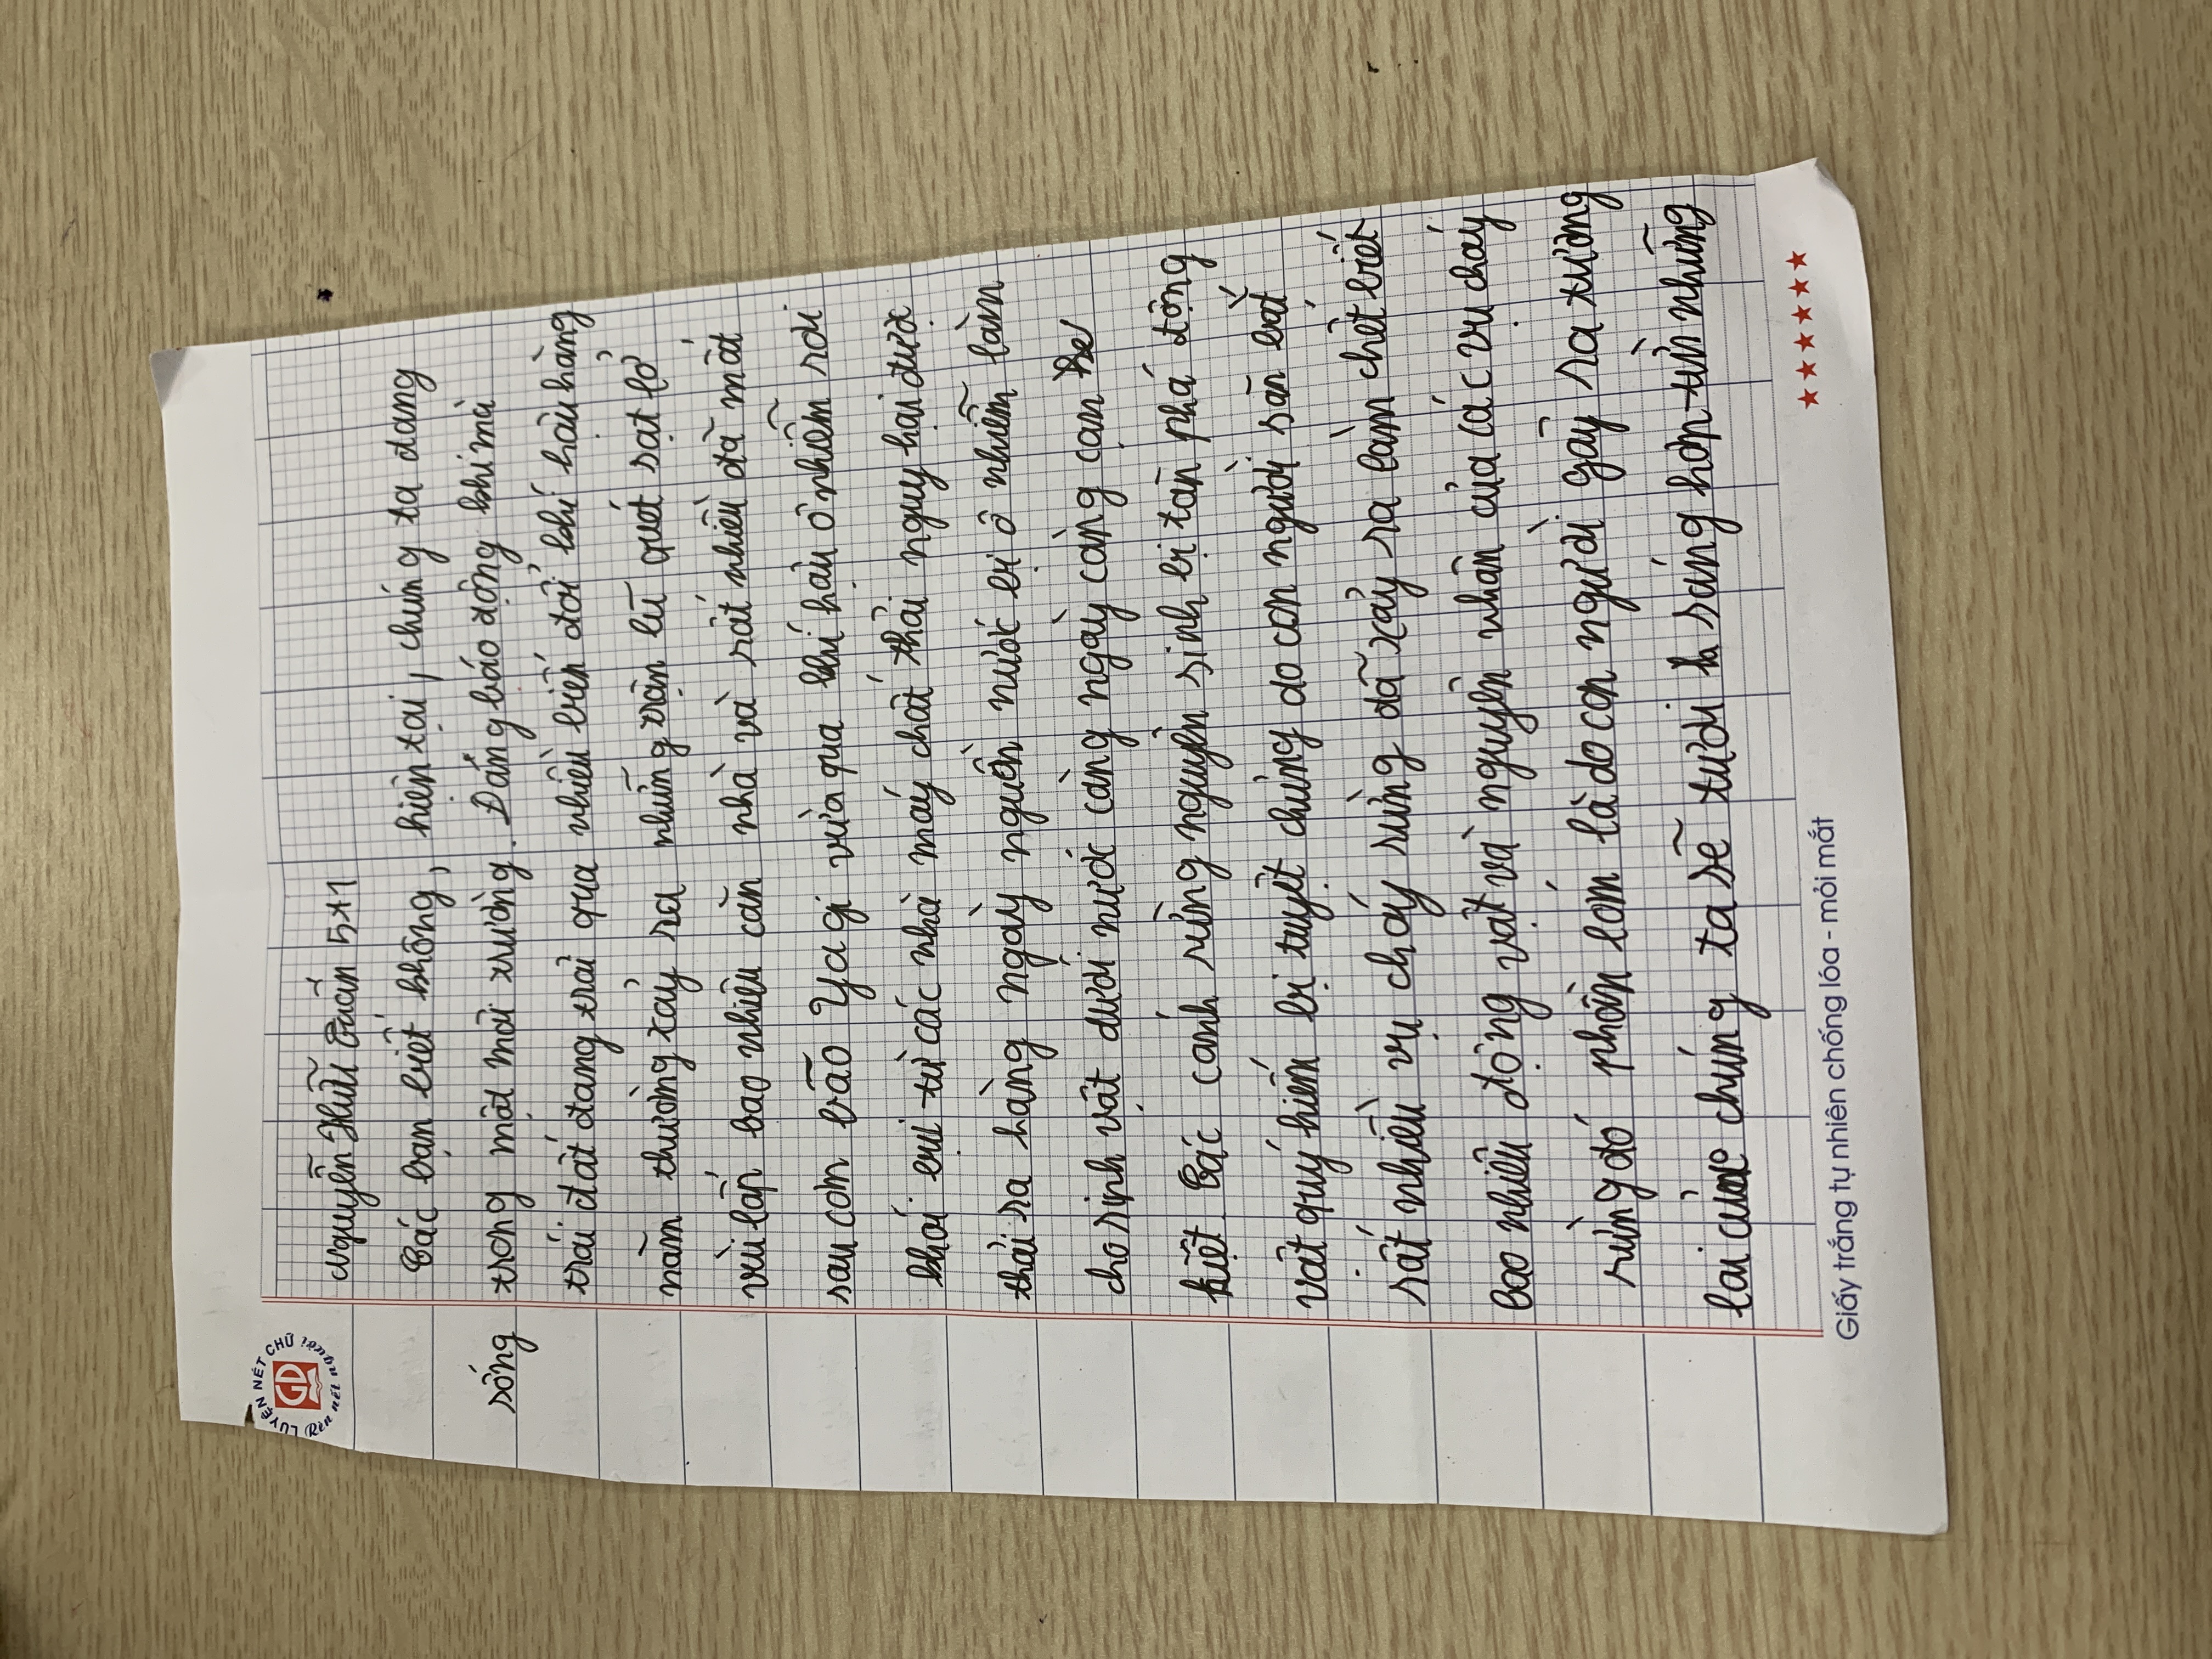 LUYỆN NÉT CHỮ
Rèn nết người
GD
Nguyễn Hữu Tuấn 5*1
Các bạn biết không, hiện tại, chúng ta đang
sống
trong một môi trường. Đáng báo động khi mà
trái đất đang trải qua nhiều biến đổi khí hậu hàng
năm thường xảy ra những trận lũ quét sạt lở
vùi lấp bao nhiêu căn nhà và rất nhiều đã mất
sau cơn bão Yagi vừa qua khí hậu ô nhiễm rồi
khói bụi từ các nhà máy chất thải nguy hại được
thải ra hàng ngày nguồn nước bị ô nhiễm làm
cho sinh vật dưới nước càng ngày càng cạn
kiệt. Các cánh rừng nguyên sinh bị tàn phá động
vật quý hiếm bị tuyệt chủng do con người săn bắt
rất nhiều vụ cháy rừng đã xảy ra làm chết biết
bao nhiêu động vật và nguyên nhân của các vụ cháy
rừng đó phần lớn là do con người gây ra tương
lai của chúng ta sẽ tươi sáng hơn từ những
Giấy trắng tự nhiên chống lóa - mỏi mắt